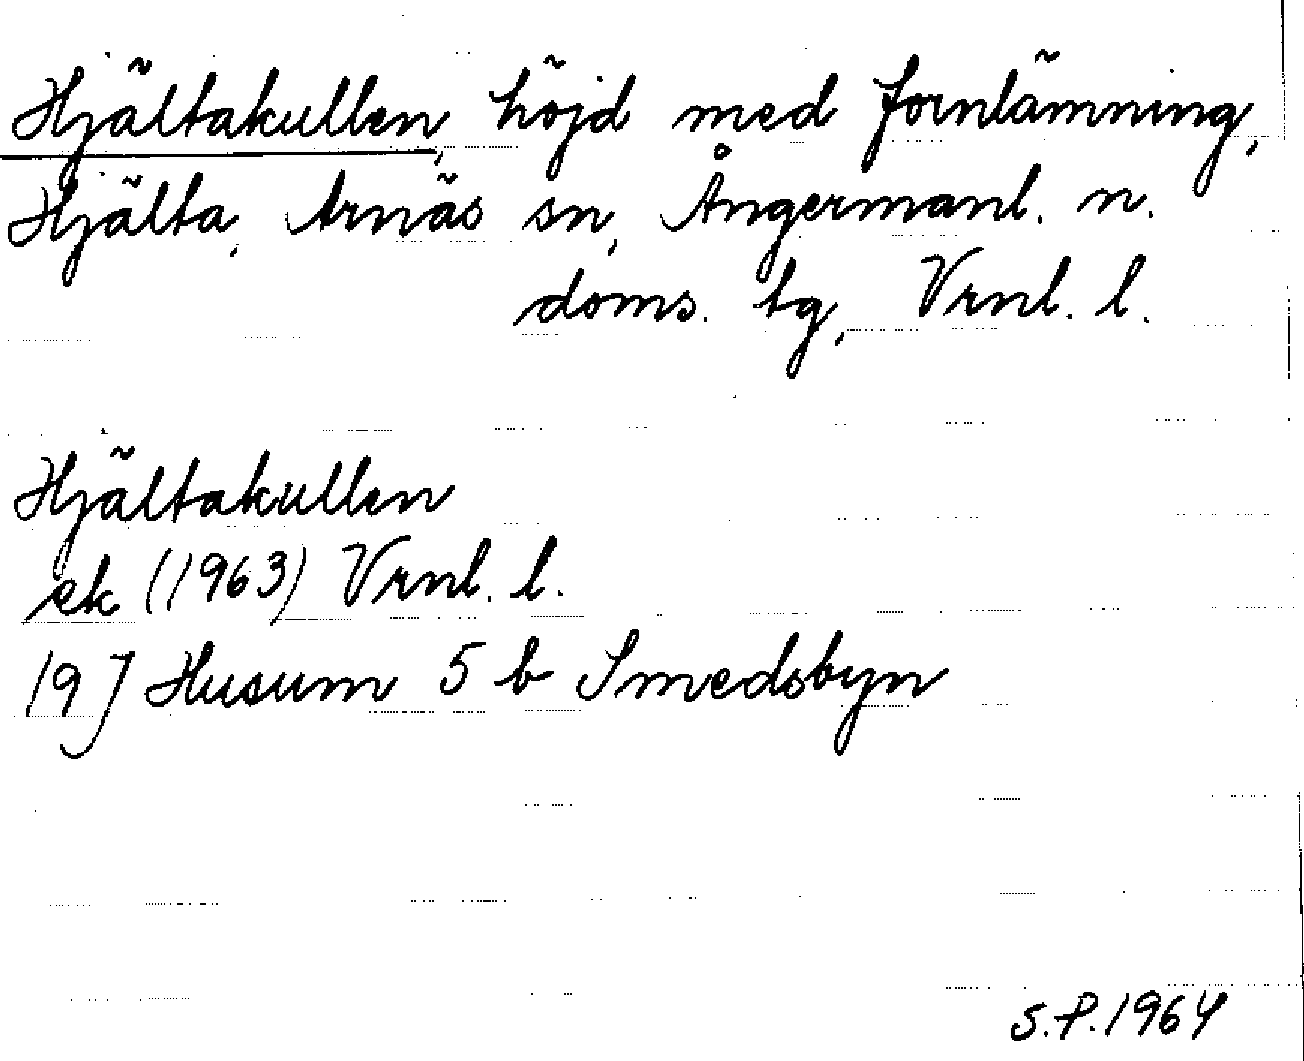 Hjältakullen, höjd med fornlämning,
Hjälta, Arnäs sn, Ångermanl. n.
doms. tg, Vrnl. l.
Hjältakullen
ek (1963) Vrnl. l.
19 J Husum 5 b Smedsbyn
S.P. 1964